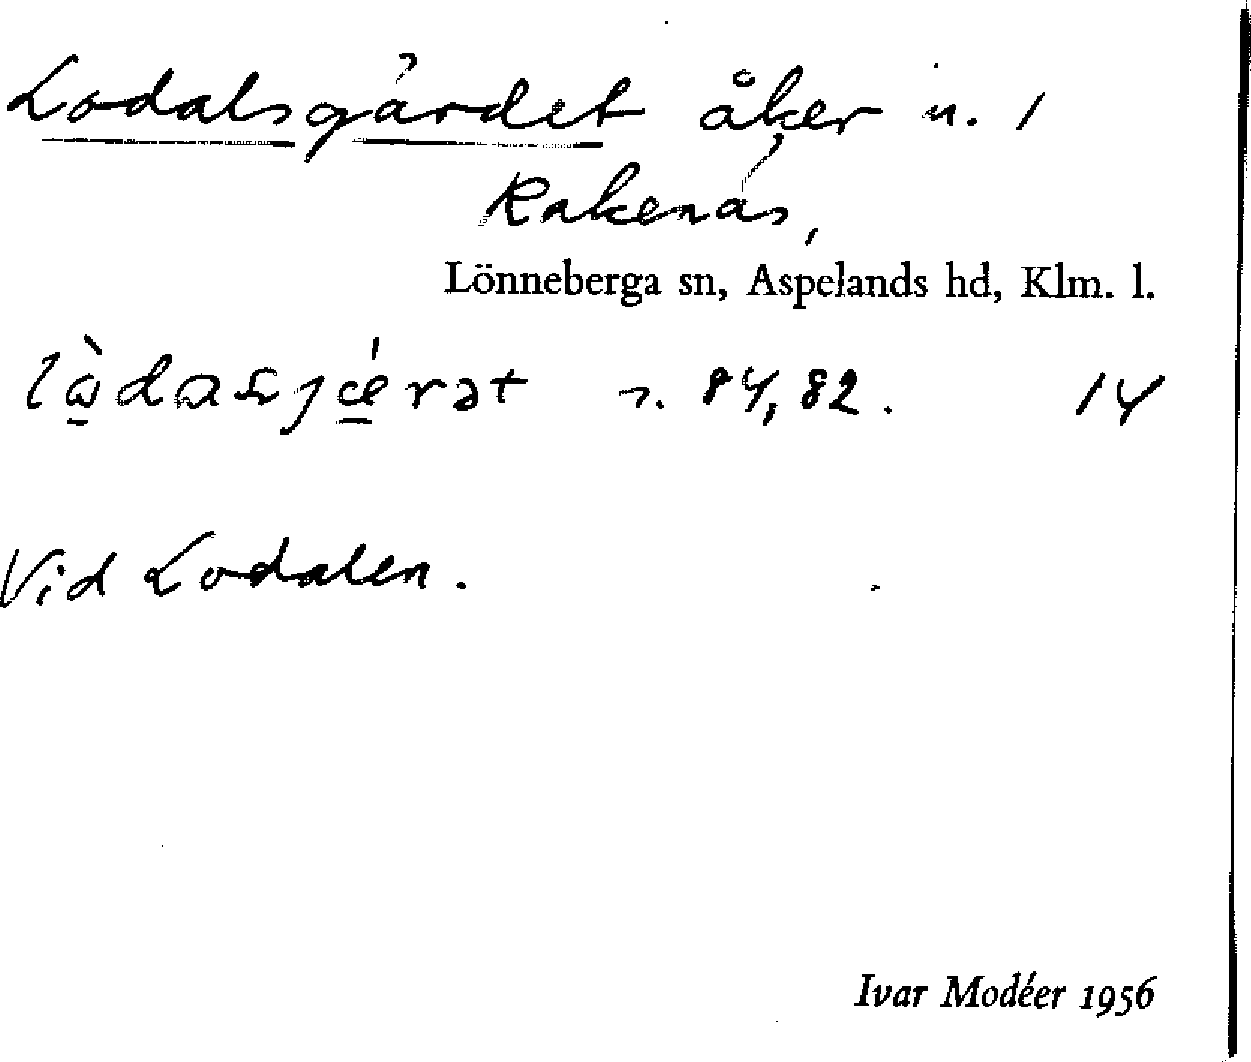 Lodalsgärdet åker n. 1
Rakenäs,
Lönneberga sn, Aspelands hd, Klm. l.
r. 84,82. 14
Vid Lodalen.
Ivar Modéer 1956